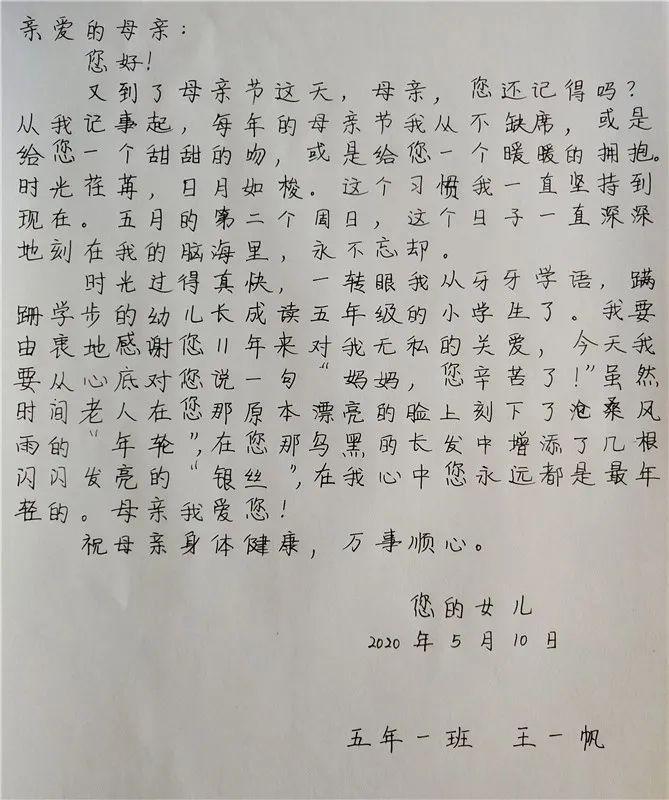 亲爱的母亲：
您好！
又到了母亲节这天，母亲，您还记得吗？
从我记事起，每年的母亲节我从不缺席，或是
给您一个甜甜的吻，或是给您一个暖暖的拥抱。
时光荏苒，日月如梭。这个习惯我一直坚持到
现在。五月的第二个周日，这个日子一直深深
地刻在我的脑海里，永不忘却。
时光过得真快，一转眼我从牙牙学语，蹒
跚学步的幼儿长成读五年级的小学生了。我要
由衷地感谢您11年来对我无私的关爱，今天我
要从心底对您说一句“妈妈，您辛苦了！”虽然
时间老人在您那原本漂亮的脸上刻下了沧桑风
雨的“年轮”，在您那乌黑的长发中增添了几根
闪闪发亮的“银丝”，在我心中您永远都是最年
轻的。母亲我爱您！
祝母亲身体健康，万事顺心。
您的女儿
2020年5月10日
五年一班 王一帆